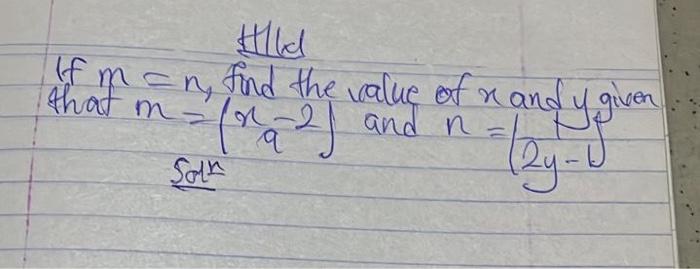 If m = n, find the value of x and y given
that m = (x - 2 / 9) and n = (1 / 2y - 1)
Solⁿ